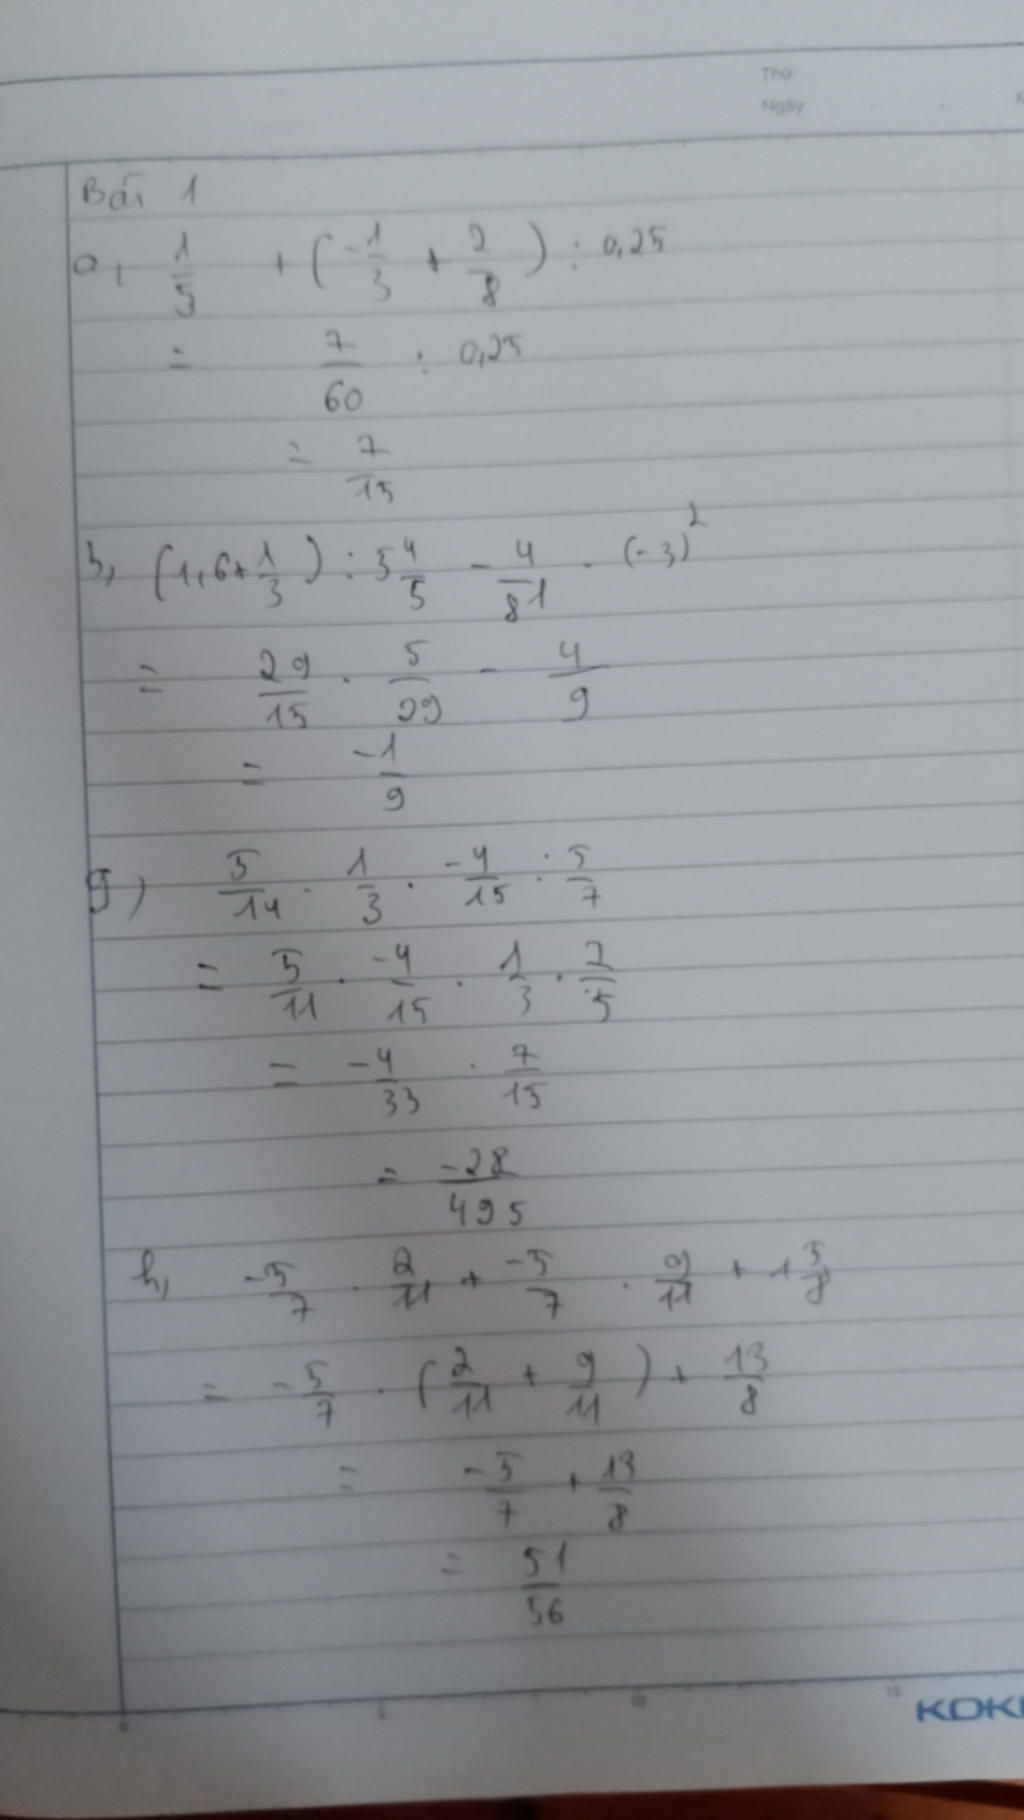 Thứ
Ngày
Bài 1
a, 1/5 + (-1/3 + 2/8) : 0,25
= 7/60 : 0,25
= 7/15
b, (1,6 + 1/3) : 5 4/5 - 4/81 . (-3)²
= 29/15 . 5/29 - 4/9
= -1/9
g) 5/14 . 1/3 . -4/15 : 5/7
= 5/11 . -4/15 . 1/3 . 7/5
= -4/33 . 7/15
= -28/495
h, -5/7 . 2/11 + -5/7 . 9/11 + 1 5/8
= -5/7 . (2/11 + 9/11) + 13/8
= -5/7 + 13/8
= 51/56
0 5 10 15